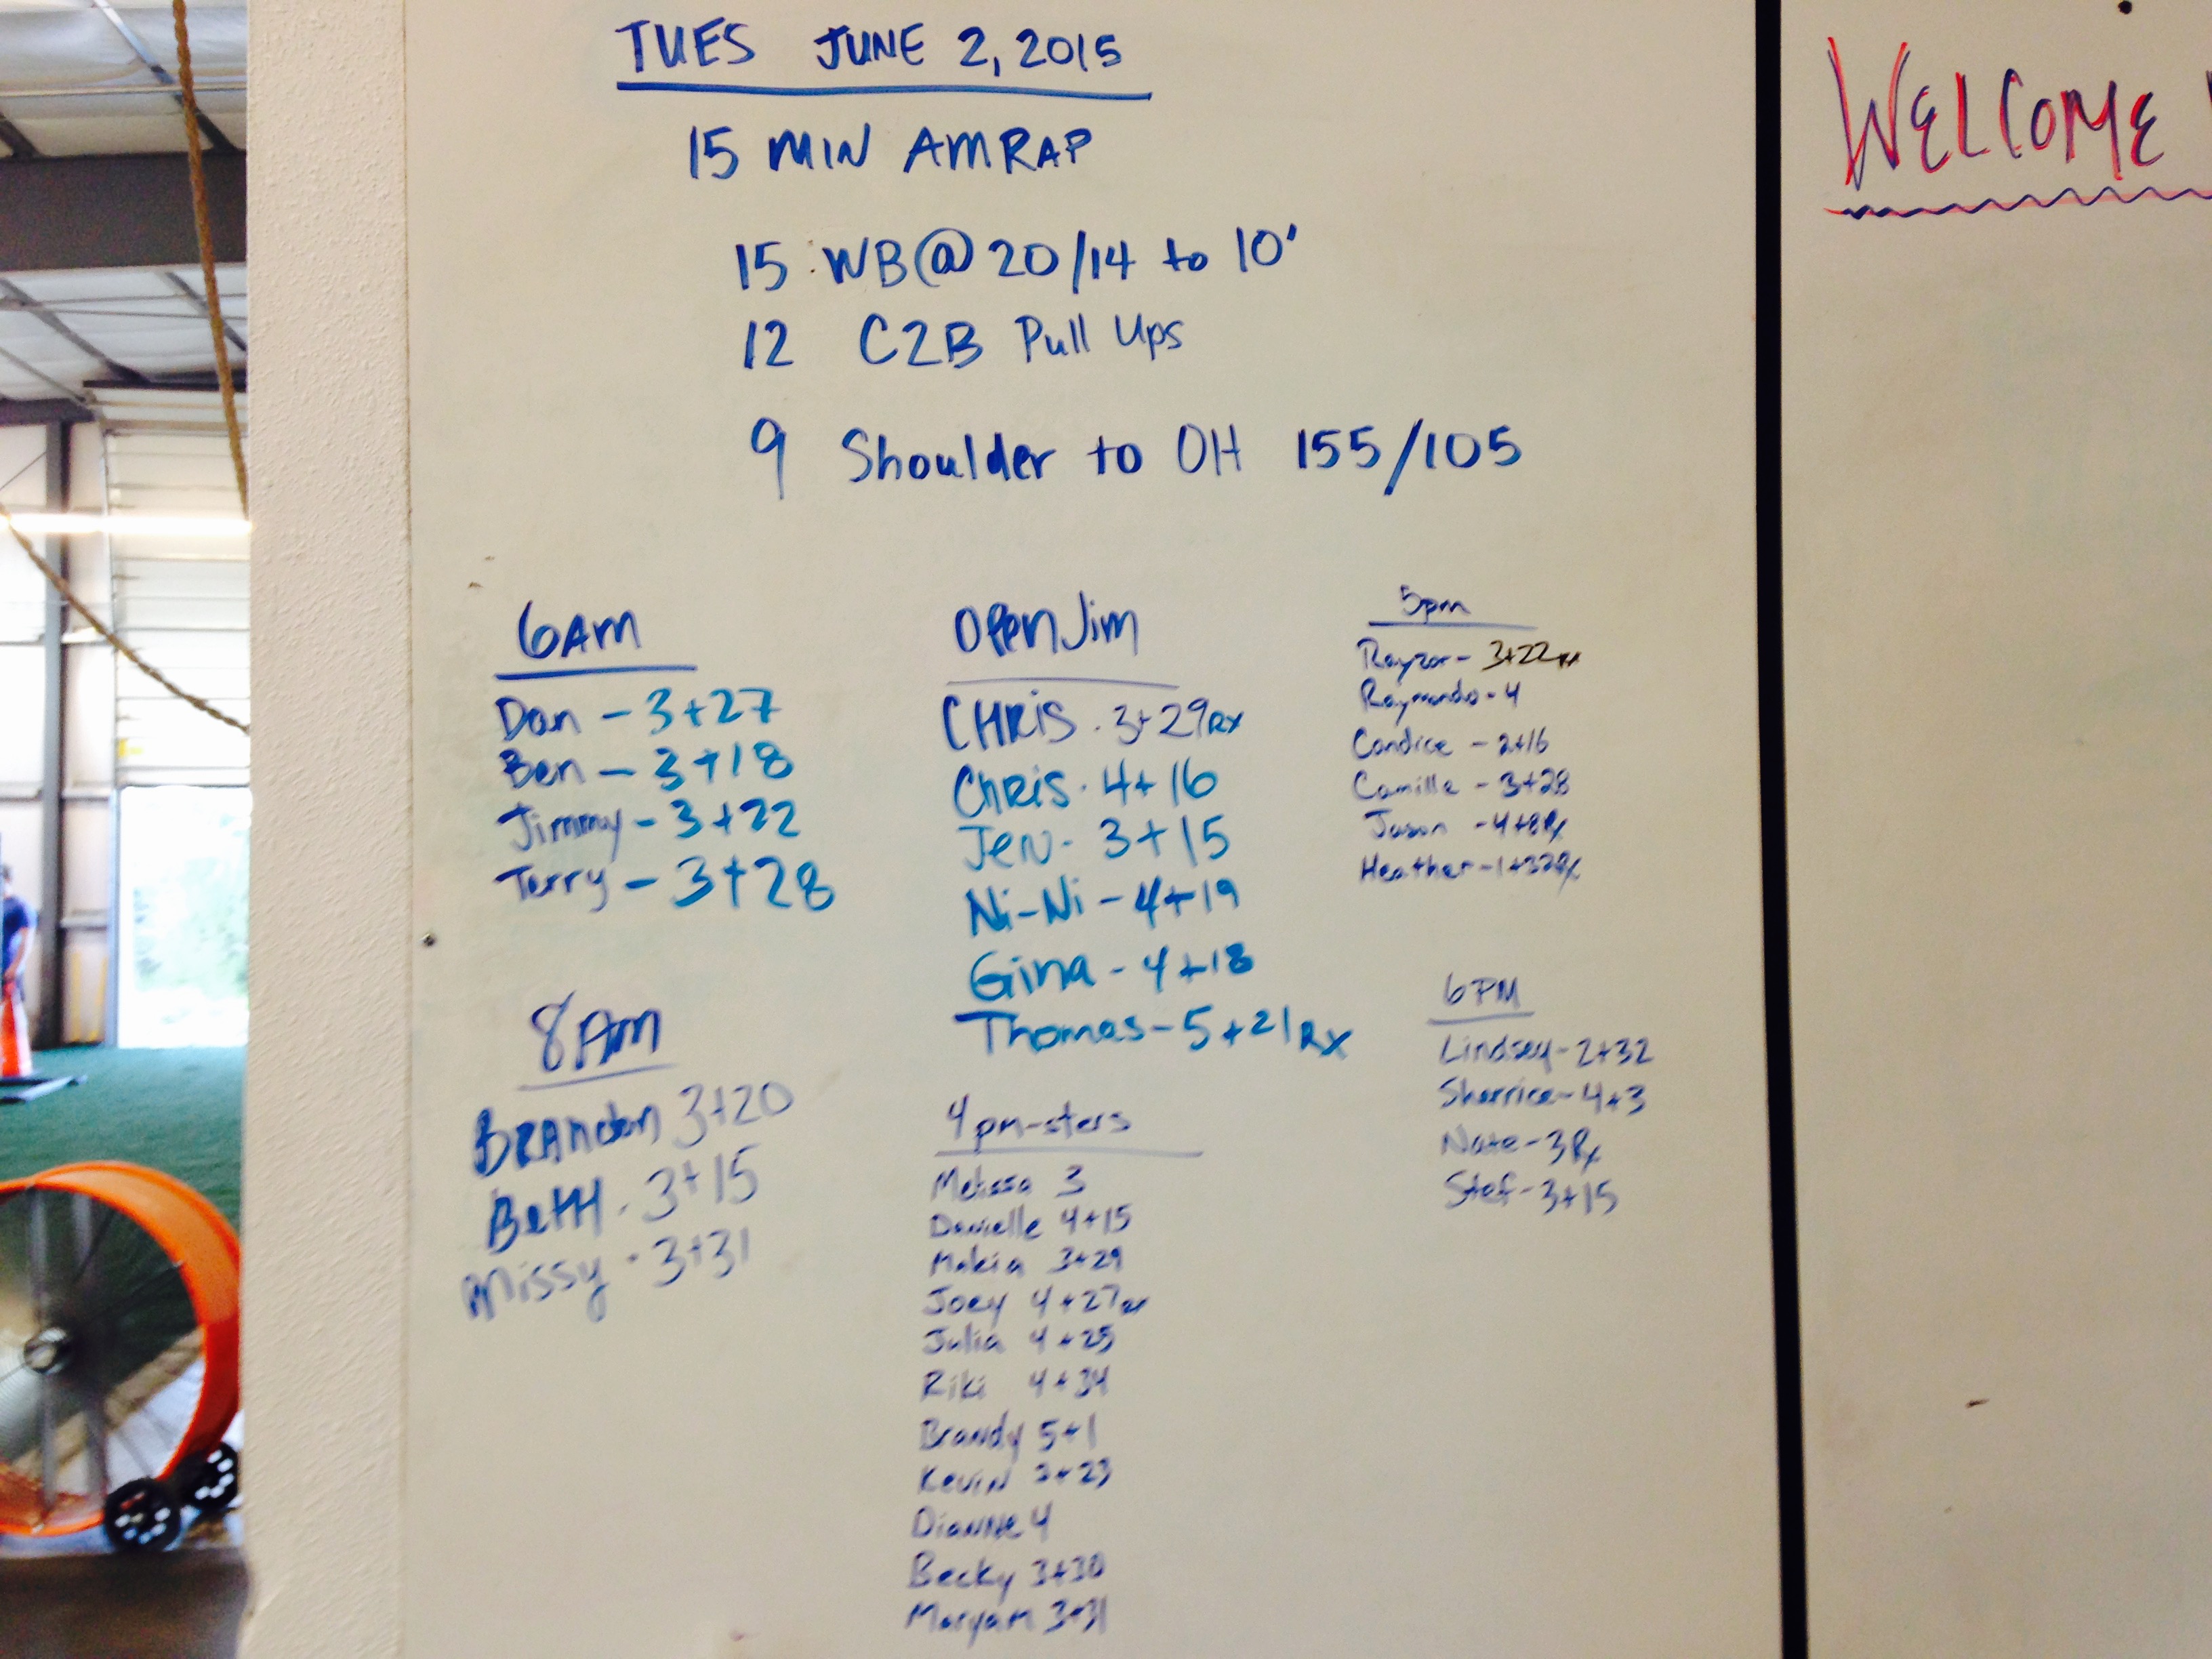 TUES JUNE 2, 2015
15 MIN AMRAP
15 WB@20/14 to 10'
12 C2B Pull Ups
9 Shoulder to OH 155/105
6Am
Dan - 3+27
Ben - 3+18
Jimmy - 3+22
Terry - 3+28
8Am
BRANdon 3+20
BetH - 3+15
Missy - 3+31
OPenJim
CHRiS - 3+29RX
ChRis - 4+16
Jen - 3+15
Ni-Ni - 4+19
Gina - 4+18
Thomas - 5+21Rx
4pm-sters
Melissa 3
Danielle 4+15
Makia 3+29
Joey 4+27rx
Julia 4+25
Riki 4+34
Brandy 5+1
Kevin 3+23
Dianne 4
Becky 3+30
Maryam 3+31
5pm
Rayzor - 3+22rx
Raymondo - 4
Candice - 2+16
Camille - 3+28
Jason - 4+8Rx
Heather - 1+32Rx
6PM
Lindsey - 2+32
Sharrice - 4+3
Nate - 3Rx
Stef - 3+15
WELCOME